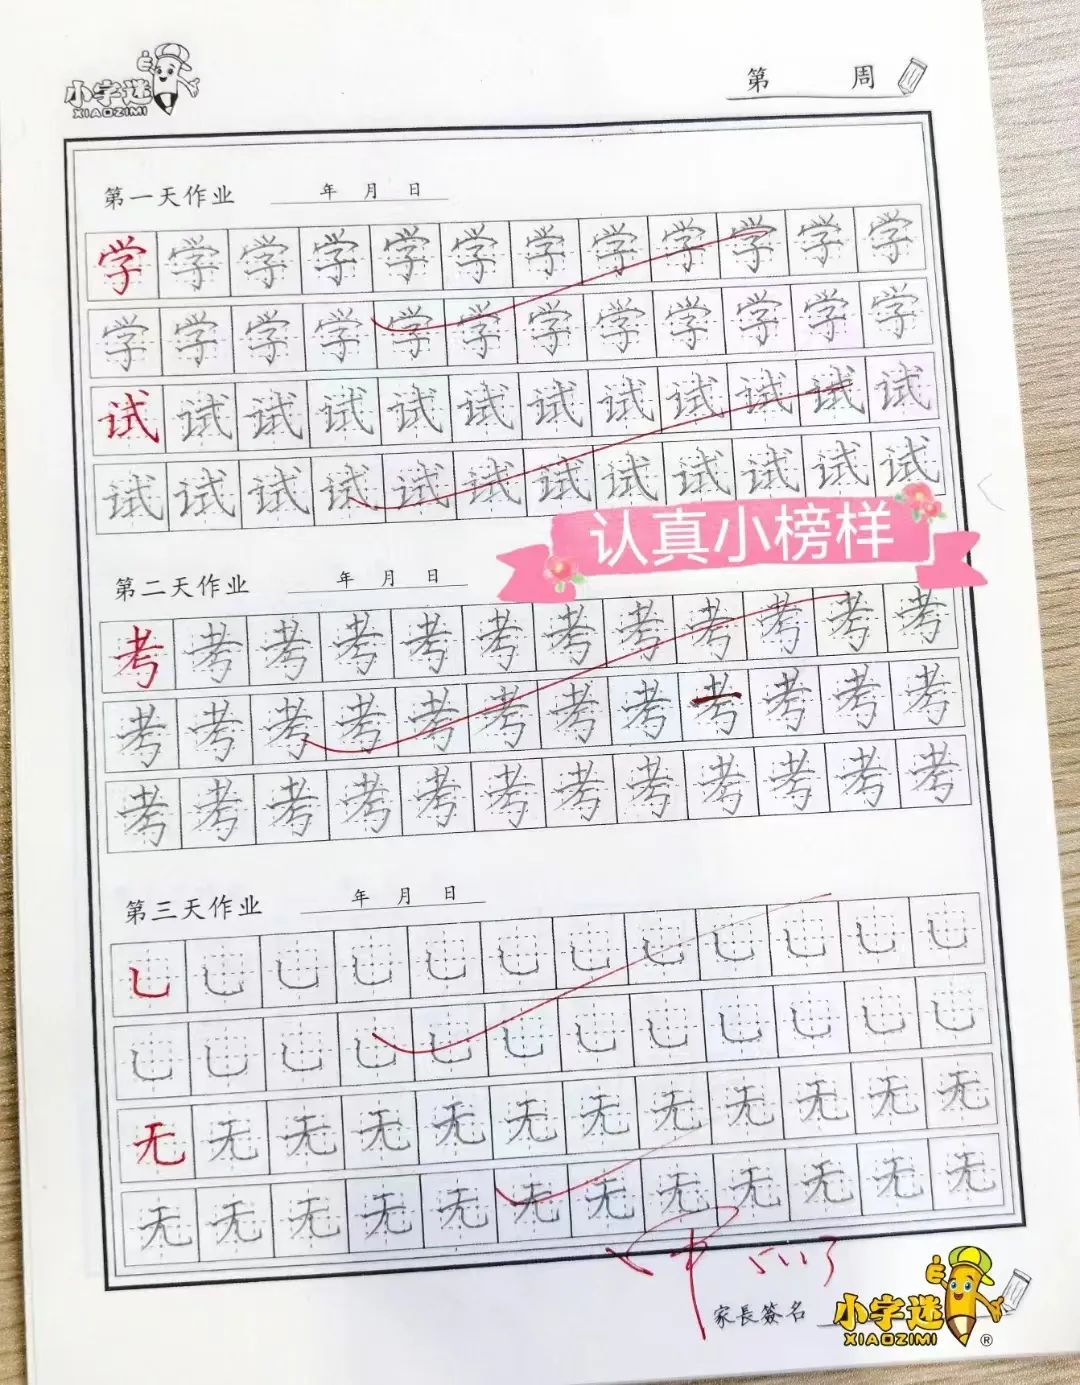 小字迷
XIAOZIMI
第 周
第一天作业 年 月 日
学学学学学学学学学学学学
学学学学学学学学学学学学
试试试试试试试试试试试试
试试试试试试试试试试试试
认真小榜样
第二天作业 年 月 日
考考考考考考考考考考考考
考考考考考考考考考考考考
考考考考考考考考考考考考
第三天作业 年 月 日
乚乚乚乚乚乚乚乚乚乚乚乚
乚乚乚乚乚乚乚乚乚乚乚乚
无无无无无无无无无无无无
无无无无无无无无无无无无
家長簽名
小字迷
XIAOZIMI®